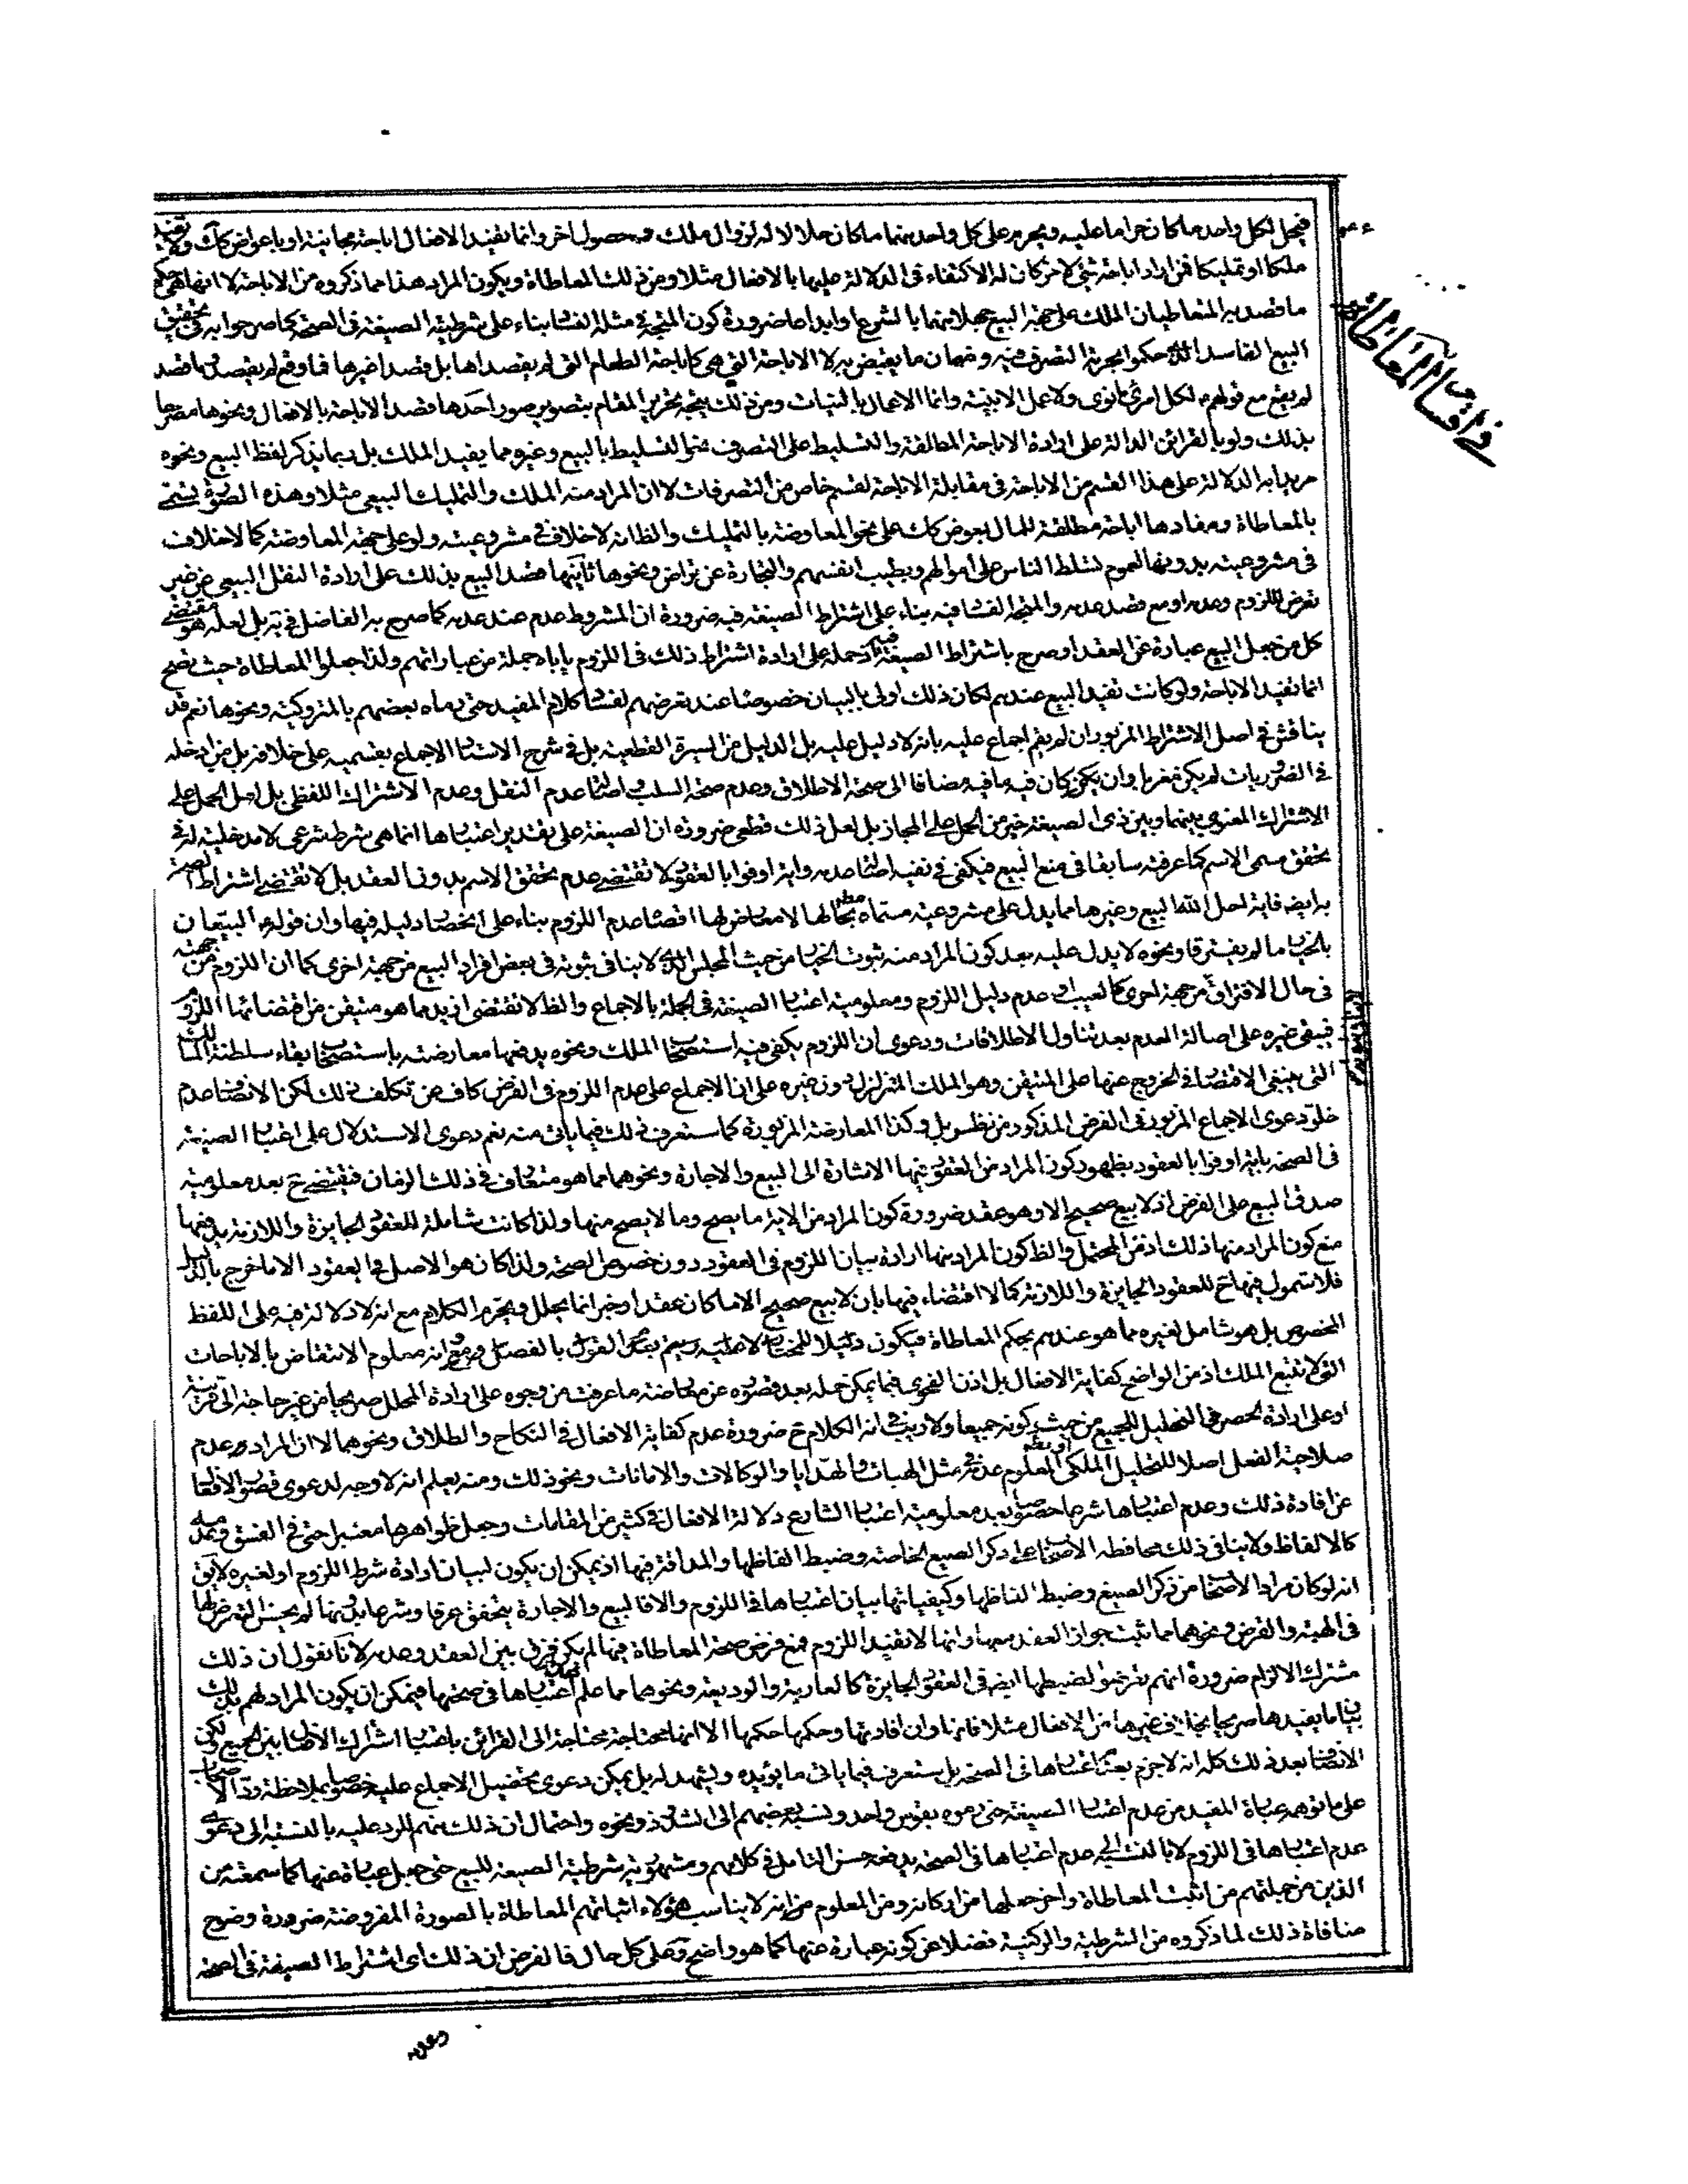 فيحل لكل واحد ما كان حراما عليه ويحرم على كل واحد منهما ما كان حلالا له لزوال ملك وحصول اخر وانما تفيد الافعال اباحة مجانية او باعواض كك ولا تفيد
ملكا او تمليكا فمن اراد اباحة شئ لاخر كان له الاكتفاء فى الدلالة عليها بالافعال مثلا ومن ذلك المعاطاة ويكون المراد هذا مما ذكروه من الاباحة لا انها هى حكم
ما قصد به المتعاطيان الملك على جهة البيع جهلا منهما بالشرع او ابداعا ضرورة كون المتجه فى مثله الفسا بناء على شرطية الصيغة فى الصحة كما صرحوا به فى تحقيق
البيع الفاسد الذى حكموا بحرمة التصرف فيه وضمان ما يقبض به لا الاباحة التى هى كاباحة الطعام التى لم يقصداها بل قصدا غيرها فما وقع لم يقصد وما قصد
لم يقع مع قولهم لكل امرئ ما نوى ولا عمل الا بنية وانما الاعمال بالنيات ومن ذلك يتجه تحرير المقام بتصوير صور احدها قصد الاباحة بالافعال ونحوها مصرحا
بذلك ولو بالقرائن الدالة على ارادة الاباحة المطلقة والتسليط على التصرف نحو التسليط بالبيع وغيره مما يفيد الملك بل ربما يذكر لفظ البيع ونحوه
مريدا به الدلالة على هذا القسم من الاباحة فى مقابلة الاباحة لقسم خاص من التصرفات لا ان المراد منه الملك والتمليك البيعى مثلا وهذه الصورة يسمى
بالمعاطاة ومفادها اباحة مطلقة للمال بعوض كك على نحو المعاوضة بالتمليك والظ انه لا خلاف فى مشروعيته ولو على جهة المعاوضة كما لا خلاف
فى مشروعيته بدونها لعموم تسلط الناس على اموالهم وبطيب انفسهم والتجارة عن تراض ونحوها ثانيها قصد البيع بذلك على ارادة النقل البيعى من غير
تعرض للزوم وعدمه او مع قصد عدمه والمتجه الفسا فيه بناء على اشتراط الصيغة فيه ضرورة ان المشروط عدم عند عدمه كما صرح به الفاضل فى ير بل لعله هو مقتضى
كل من جعل البيع عبارة عن العقد او صرح باشتراط الصيغة فيه وحمله على ارادة اشتراط ذلك فى اللزوم ياباه جملة من عباراتهم ولذا جعلوا المعاطاة حيث تصح
انما تفيد الاباحة ولو كانت تفيد البيع عندهم لكان ذلك اولى بالبيان خصوصا عند تعرضهم لفسا كلام المفيد حتى رماه بعضهم بالمتروكية ونحوها نعم قد
يناقش فى اصل الاشتراط المزبور ان لم يقم اجماع عليه بانه لا دليل عليه بل الدليل من السيرة القطعية بل فى شرح الاستا الاجماع بقسميه على خلافه بل من ادخله
فى الضروريات لم يكن مغربا وان يكن كان فيه ما فيه مضافا الى صحة الاطلاق وعدم صحة السلب واصالة عدم النقل وعدم الاشتراك اللفظى بل اصل الحمل على
الاشتراك المعنوى بينهما وبين ذى الصيغة خير من الحمل على المجاز بل لعل ذلك قطعى ضرورة ان الصيغة على تقدير اعتبارها انما هى شرط شرعى لا مدخلية له فى
تحقق مسمى الاسم كما عرفته سابقا فى منع البيع فيكفى فى نفيه اصالة عدمه واية اوفوا بالعقود لا تقتضى عدم تحقق الاسم بدون العقد بل لا تقتضى اشتراط الصحة
به ايضه فاية احل الله البيع وغيرها مما يدل على مشروعية مسماه بحالها لا معارض لها اقصا عدم اللزوم بناء على انحصا دليله فيها وان قوله البيعان
بالخيار ما لم يفترقا ونحوه لا يدل عليه بعد كون المراد منه ثبوت الخيار من حيث المجلس الذى لا ينافى ثبوته فى بعض افراد البيع من جهة اخرى كما ان اللزوم من جهة
فى حال الافتراق من جهة اخرى كالعيب او عدم دليل اللزوم ومعلومية اعتبار الصيغة فى الجملة بالاجماع والظ لا تقتضى ازيد مما هو متيقن من اقتضائها اللزوم
فيبقى غيره على اصالة العدم بعد تناول الاطلاقات ودعوى ان اللزوم يكفى فيه استصحاب الملك ونحوه يدفعها معارضته باستصحاب بقاء سلطنة المالك
التى ينبغى الاقتصار فى الخروج عنها على المتيقن وهو الملك المتزلزل دون غيره على ان الاجماع على عدم اللزوم فى الفرض كاف عن تكلف ذلك لكن الانصاف عدم
خلو دعوى الاجماع المزبور فى الفرض المذكور من نظر بل وكذا المعارضة المزبورة كما ستعرف ذلك فيما ياتى منه نعم دعوى الاستدلال على اعتبار الصيغة
فى الصحة باية اوفوا بالعقود بظهور كون المراد من العقود فيها الاشارة الى البيع والاجارة ونحوهما مما هو متعارف فى ذلك الزمان فتقتضى ح بعد معلومية
صدق البيع على الفرض اذ لا بيع صحيح الا وهو عقد ضرورة كون المراد من الاية ما يصح وما لا يصح منها ولذا كانت شاملة للعقود الجايزة واللازمة يدفعها
منع كون المراد منها ذلك اذ من المحتمل والظ كون المراد منها ارادة بيان اللزوم فى العقود دون خصوص الصحة ولذا كان هو الاصل فى العقود الا ما خرج بالدليل
فلا شمول فيها ح للعقود الجايزة واللازمة كما لا اقتضاء فيها بان لا بيع صحيح الا ما كان عقدا وخبر انما يحلل ويحرم الكلام مع انه لا دلالة فيه على اللفظ
المخصوص بل هو شامل لغيره مما هو عندهم بحكم المعاطاة فيكون دليلا للمختار لا عليه سيما القول بالفصل ومع انه معلوم الانتقاض بالاباحات
التى لا تتبع الملك اذ من الواضح كفاية الافعال بل اذن الفحوى فيما يمكن حمله بعد قصوره عن معارضة ما عرفت من وجوه على ارادة المحلل صريحا من غير حاجة الى قرينة
او على ارادة الحصر فى التحليل للجميع من حيث كونه جميعا ولا ريب فى انه الكلام ح ضرورة عدم كفاية الافعال فى النكاح والطلاق ونحوهما لا ان المراد عدم
صلاحية الفعل اصلا للتحليل الملكى المعلوم عدمه فى مثل الهبات والهدايا والوكالات والامانات ونحو ذلك ومنه يعلم انه لا وجه لدعوى قصور الافعال
عن افادة ذلك وعدم اعتبارها شرعا خصوصا بعد معلومية اعتبار الشارع دلالة الافعال فى كثير من المقامات وجعل ظواهرها معتبرا حتى فى الفسق
كالالفاظ ولا ينافى ذلك محافظة الاصحاب على ذكر الصيغ الخاصة وضبط الفاظها والمداقة فيها اذ يمكن ان يكون لبيان ارادة شرط اللزوم او لغيره لا يق
انه لو كان مراد الاصحاب من ذكر الصيغ وضبط الفاظها وكيفياتها بيان اعتبارها فى اللزوم والا فالبيع والاجارة يتحقق عرفا وشرعا بدونها لم يحسن التعرض لها
فى الهبة والقرض ونحوهما مما ثبت جواز العقد معها وانها لا تفيد اللزوم فمع فرض صحة المعاطاة فيها لم يكن فرق بين العقد وعدمه لانا نقول ان ذلك
مشترك الالزام ضرورة انهم تعرضوا لضبطها ايضه فى العقود الجايزة كالعارية والوديعة ونحوهما مما علم عدم اعتبارها فى صحتها فيمكن ان يكون المراد لهم بذلك
بيان ما يفيدها صريحا بخلاف غيرها من الافعال مثلا فانها وان افادتها وحكمها حكمها الا انها محتاجة الى القرائن باعتبار اشتراك الافعال بين الجميع لكن
الانصاف بعد ذلك كله انه لا جزم بعدم اعتبارها فى الصحة بل ستعرف فيما ياتى ما يؤيده ويشهد له بل يمكن دعوى تحصيل الاجماع عليه خصوصا بملاحظة رد الاصحاب
على ما توهمه عبارة المفيد من عدم اعتبار الصيغة حتى رموه بقوس واحد ونسبه بعضهم الى الشذوذ ونحوه واحتمال ان ذلك منهم للرد عليه بالنسبة الى دعوى
عدم اعتبارها فى اللزوم لا بالنسبة الى عدم اعتبارها فى الصحة يدفعه حسن التامل فى كلامهم ومشهورية شرطية الصيغة للبيع حتى جعل عبارة عنها كما سمعته من
الذين من جملتهم من اثبت المعاطاة واخر جعلها من اركانه ومن المعلوم من انه لا يناسب هؤلاء اثباتهم المعاطاة بالصورة المفروضة ضرورة وضوح
منافاة ذلك لما ذكروه من الشرطية والركنية فضلا عن كونه عبارة عنها كما هو واضح وعلى كل حال فالفرض ان ذلك اى اشتراط الصيغة فى الصحة
فى اقسام المعاطاة